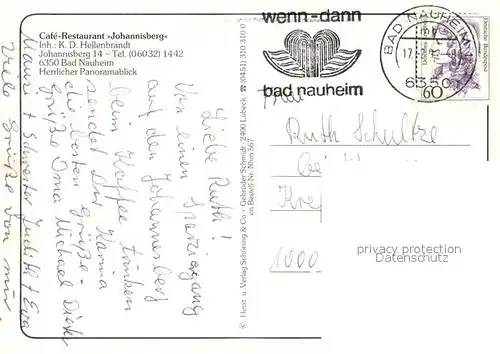 Café-Restaurant »Johannisberg«
Inh.: K. D. Hellenbrandt
Johannisberg 14 – Tel. (06032) 1442
6350 Bad Nauheim
Herrlicher Panoramablick
Liebe Ruth!
Von einen Spaziegang
auf den Johannesberg
beim Kaffee trinken
sendet Dir Karina
die besten Grüße.
Grüße Oma Michael Dieter
Mama + Schwester Judith + Eva
Viele Grüße von mir
© Herst. u. Verlag Schöning & Co · Gebrüder Schmidt · 2400 Lübeck · ☎ (0451) 310 310
Bestell-Nr. Nhm 567
wenn-dann
bad nauheim
BAD NAUHEIM
6350
60
Deutsche Bundespost
Frau
Ruth Schultze
Kre
1000
privacy protection
Datenschutz